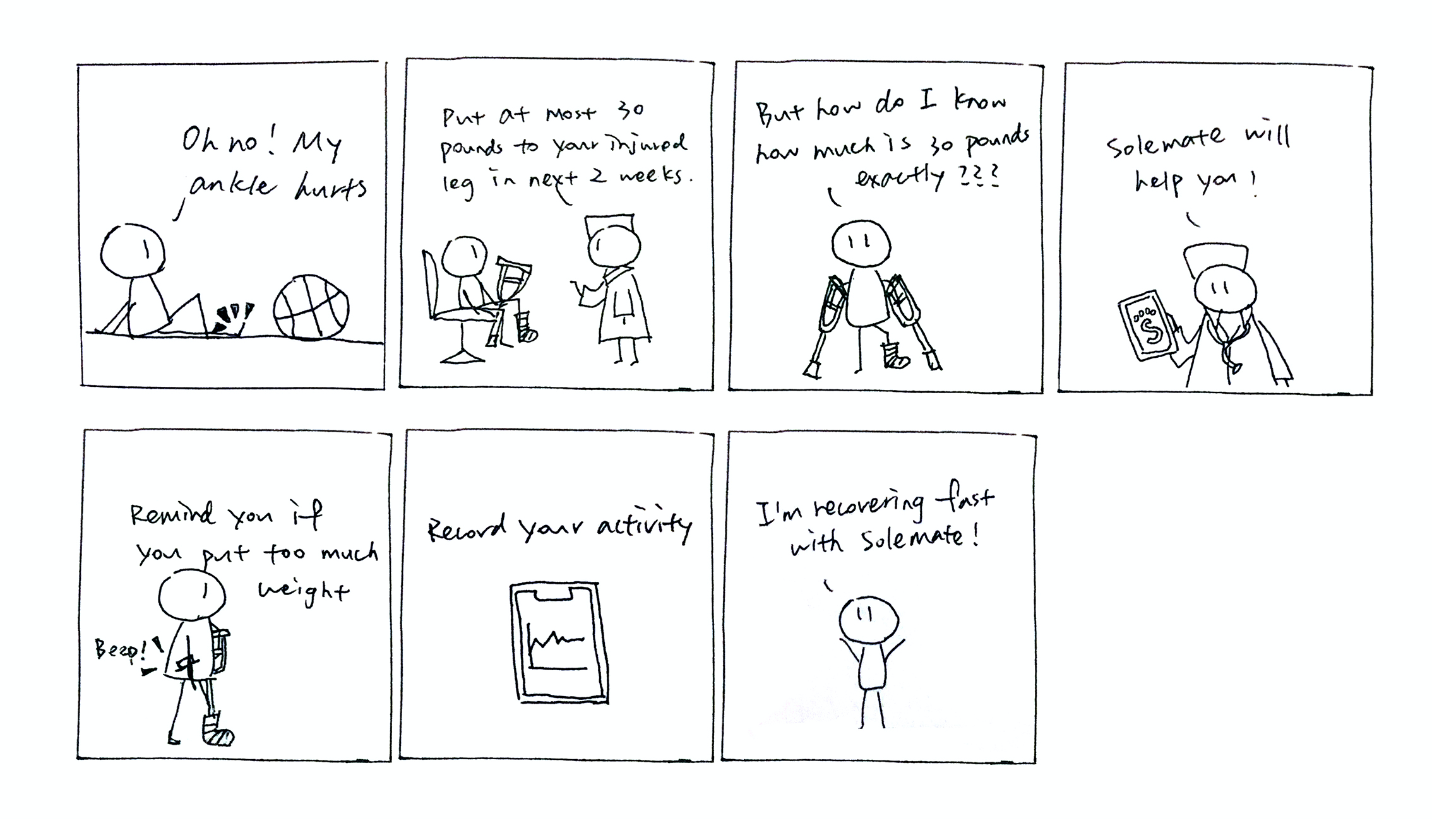 Oh no! My
ankle hurts
Put at most 30
pounds to your injured
leg in next 2 weeks.
But how do I know
how much is 30 pounds
exactly ???
Solemate will
help you!
S
Remind you if
you put too much
weight
Beep!
Record your activity
I'm recovering fast
with Solemate!